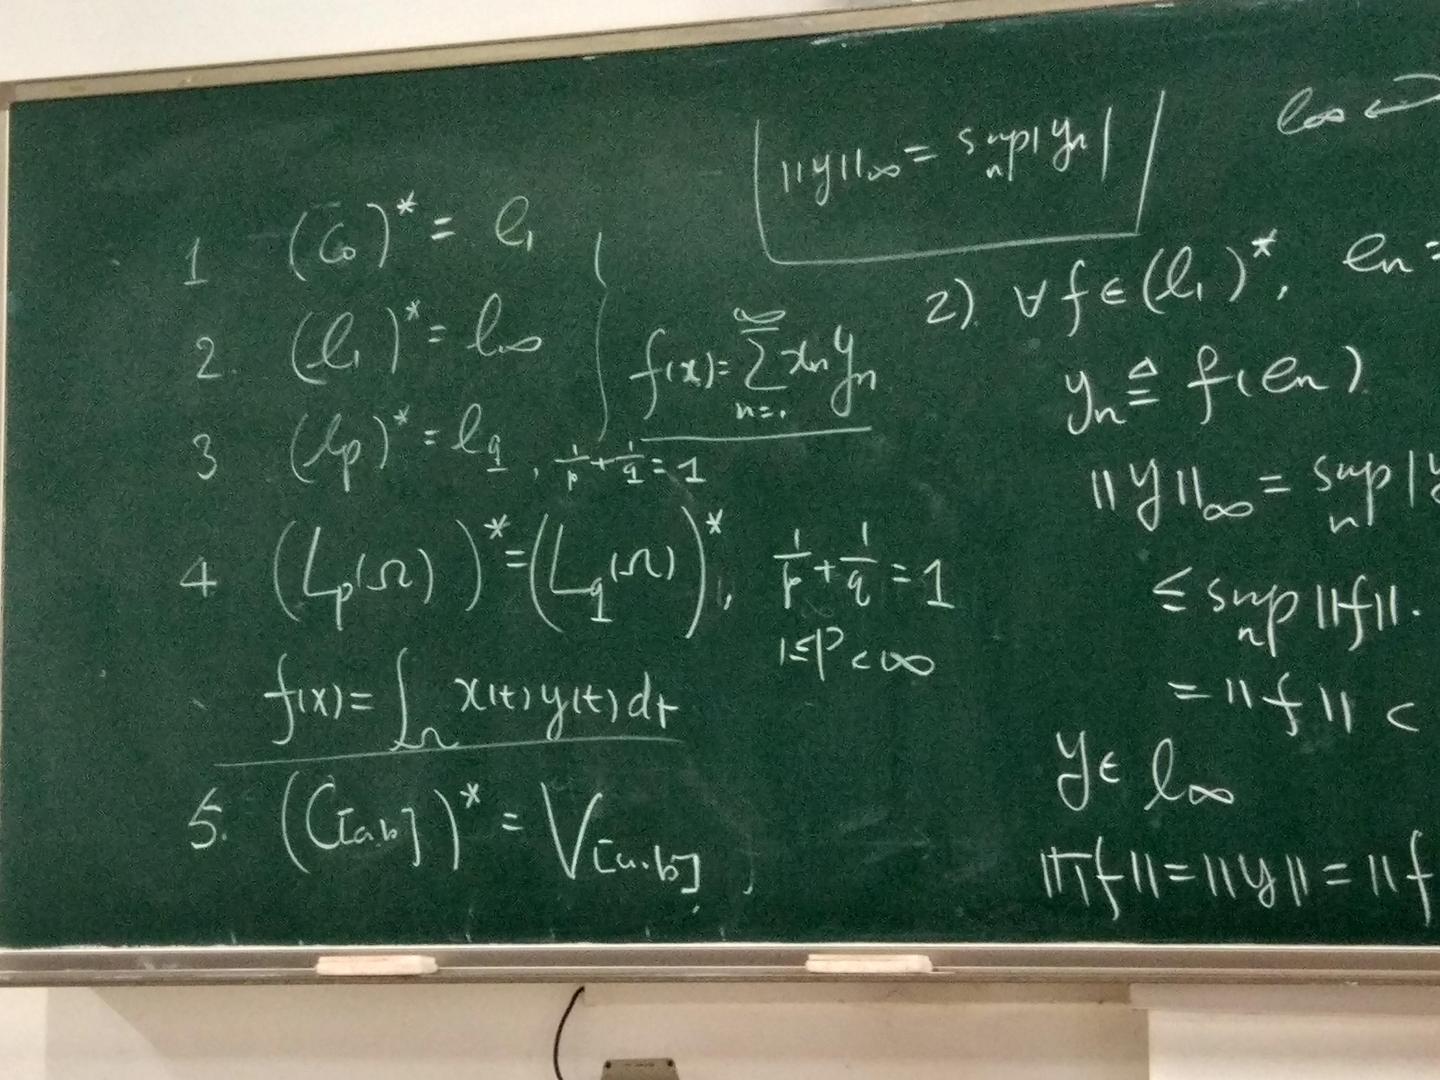 1 (C₀)* = l₁
2. (l₁)* = l∞
3 (lp)* = lq, 1/p + 1/q = 1
f(x) = ∑_{n=1}^{∞} xₙyₙ
4 (Lp(Ω))* = (Lq(Ω))*, 1/p + 1/q = 1
1 ≤ p < ∞
f(x) = ∫_Ω x(t) y(t) dt
5. (C[a,b])* = V[a,b],
||y||∞ = sup_n |yₙ|
l∞ ←
2) ∀ f ∈ (l₁)*, eₙ =
yₙ ≜ f(eₙ)
||y||∞ = sup_n |y
≤ sup_n ||f|| ·
= ||f|| <
y ∈ l∞
||Tf|| = ||y|| = ||f